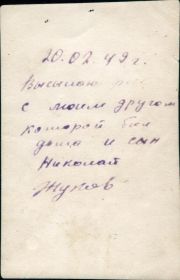 20.02.49 г.
Высылаю
с моим другом
которой был
дома и сын
Николай
Жуков